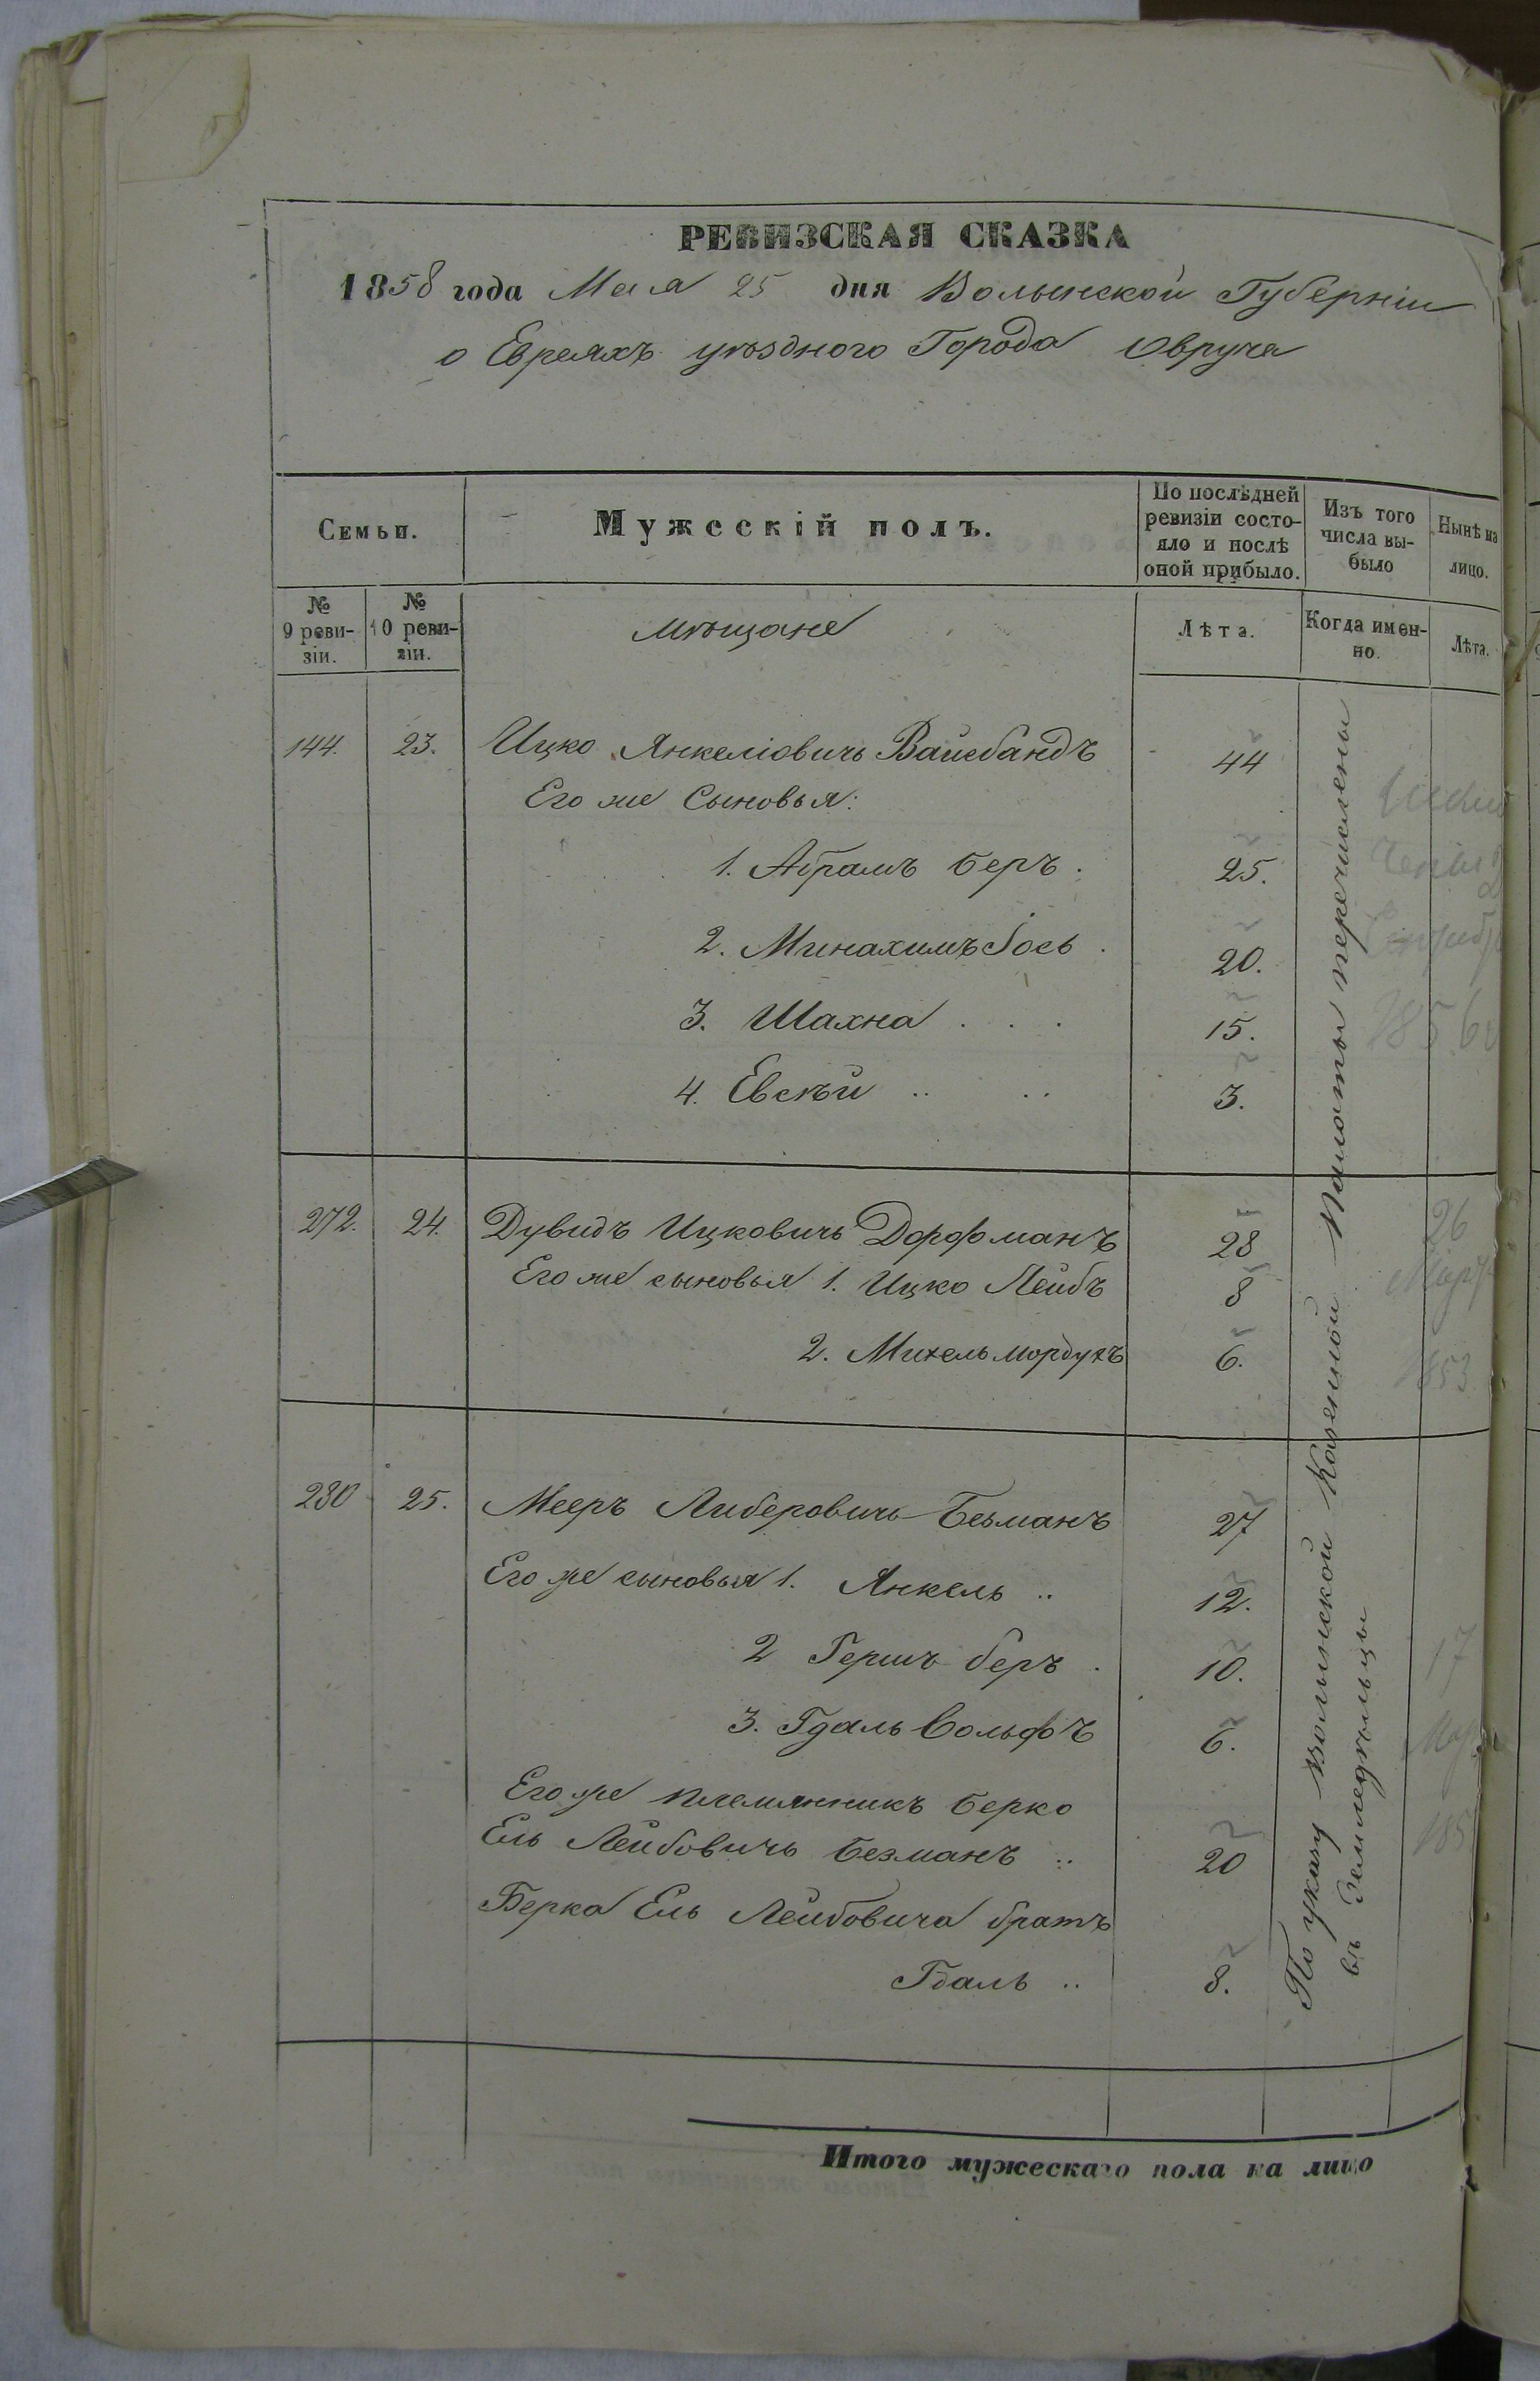 РЕВИЗСКАЯ СКАЗКА
1858 года Мая 25 дня Волынской Губерніи
о Евреяхъ уѣздного Города Овруча
Семьи.
Мужескій полъ.
По послѣдней ревизіи состо-
яло и послѣ
оной прибыло.
Изъ того
числа вы-
было
Нынѣ на
лицо.
№
9 реви-
зіи.
№
10 реви-
зіи.
мѣщане
Лѣта.
Когда имен-
но.
Лѣта.
144. 23. Ицко Янкеліовичъ Вайсбандъ 44
Его же Сыновья:
1. Абрамъ Беръ. 25.
2. Минахимъ Іось. 20.
3. Шахна . . . 15.
4. Евсѣй .. .. 3.
272. 24. Дувидъ Ицковичь Дорфманъ 28
Его же сыновья 1. Ицко Лейбъ 8
2. Михель Мордухъ 6.
26
1853
230 25. Мееръ Либеровичь Бесманъ 27
Его же сыновья 1. Янкель .. 12.
2 Гершъ беръ . 10.
3. Гдаль Вольфъ 6.
Его же племянникъ Берко
Ель Лейбовичь Безманъ .. 20
Берка Ель Лейбовича братъ
Гдаль .. 8.
17
По указу Волынской Казенной Палаты перечислены
въ Земледѣльцы
Итого мужескаго пола на лицо